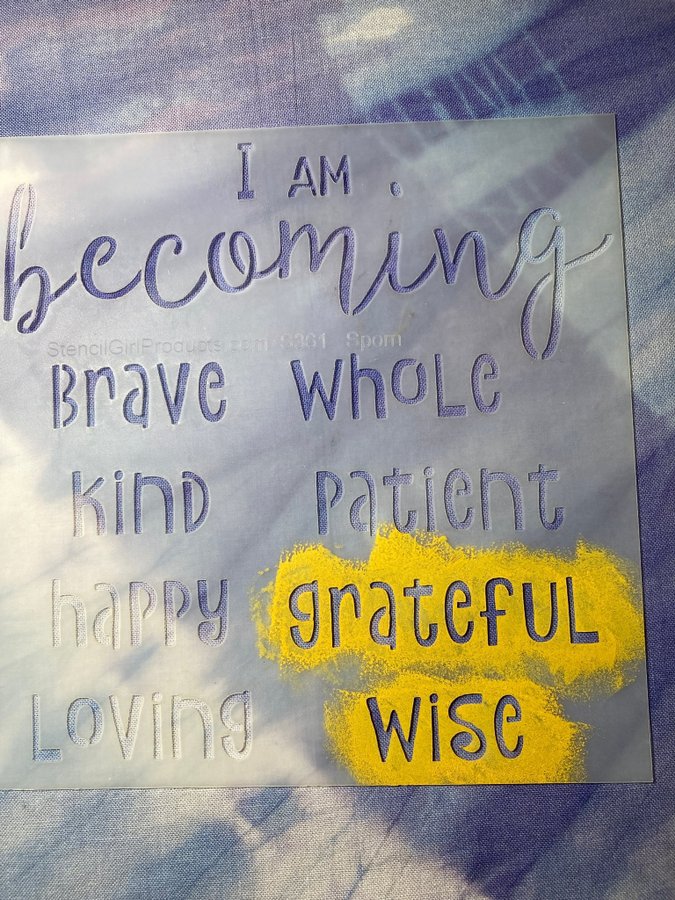 I AM
becoming
StencilGirlProducts.com S361 Sporn
Brave whole
kind patient
happy grateful
Loving wise